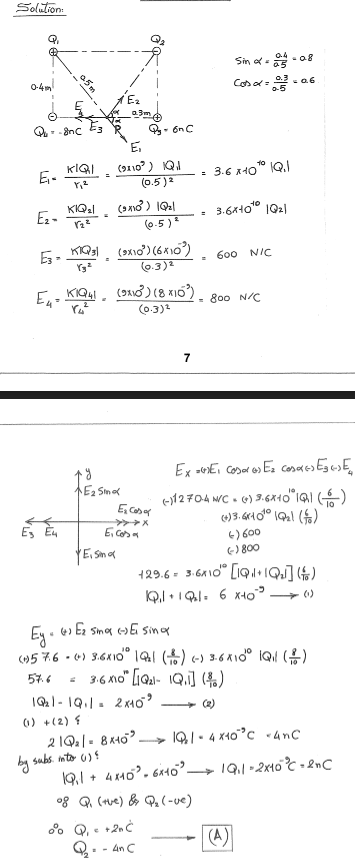 Solution:
Q₁ Q₂
Sin α = 0.4/0.5 = 0.8
Cos α = 0.3/0.5 = 0.6
0.4m 0.5m E₂
E₄ α 0.3m
α
Q₄ = -8nC E₃ P Q₃ = 6nC
E₁
E₁ = K|Q₁|/r₁² = (9x10⁹) |Q₁|/(0.5)² = 3.6 x10¹⁰ |Q₁|
E₂ = K|Q₂|/r₂² = (9x10⁹) |Q₂|/(0.5)² = 3.6x10¹⁰ |Q₂|
E₃ = K|Q₃|/r₃² = (9x10⁹)(6x10⁻⁹)/(0.3)² = 600 N/C
E₄ = K|Q₄|/r₄² = (9x10⁹)(8x10⁻⁹)/(0.3)² = 800 N/C
7
y
E₂ Sin α
E₂ Cos α
E₃ E₄ E₁ Cos α x
E₁ Sin α
Eₓ = (+)E₁ Cos α (+) E₂ Cos α (-) E₃ (-) E₄
(-)1270.4 N/C = (+) 3.6x10¹⁰ |Q₁| (6/10)
(+) 3.6x10¹⁰ |Q₂| (6/10)
(-) 600
(-) 800
129.6 = 3.6x10¹⁰ [|Q₁|+|Q₂|] (6/10)
|Q₁| + |Q₂| = 6 x10⁻⁹ → (1)
Ey = (+) E₂ Sin α (-) E₁ Sin α
(+)57.6 = (+) 3.6x10¹⁰ |Q₂| (8/10) (-) 3.6x10¹⁰ |Q₁| (8/10)
57.6 = 3.6x10¹⁰ [|Q₂| - |Q₁|] (8/10)
|Q₂| - |Q₁| = 2x10⁻⁹ → (2)
(1) + (2) :
2|Q₂| = 8x10⁻⁹ → |Q₂| = 4x10⁻⁹C = 4nC
by subs. into (1) :
|Q₁| + 4x10⁻⁹ = 6x10⁻⁹ → |Q₁| = 2x10⁻⁹C = 2nC
∵ Q₁ (+ve) & Q₂ (-ve)
∴ Q₁ = +2nC
Q₂ = - 4nC → (A)